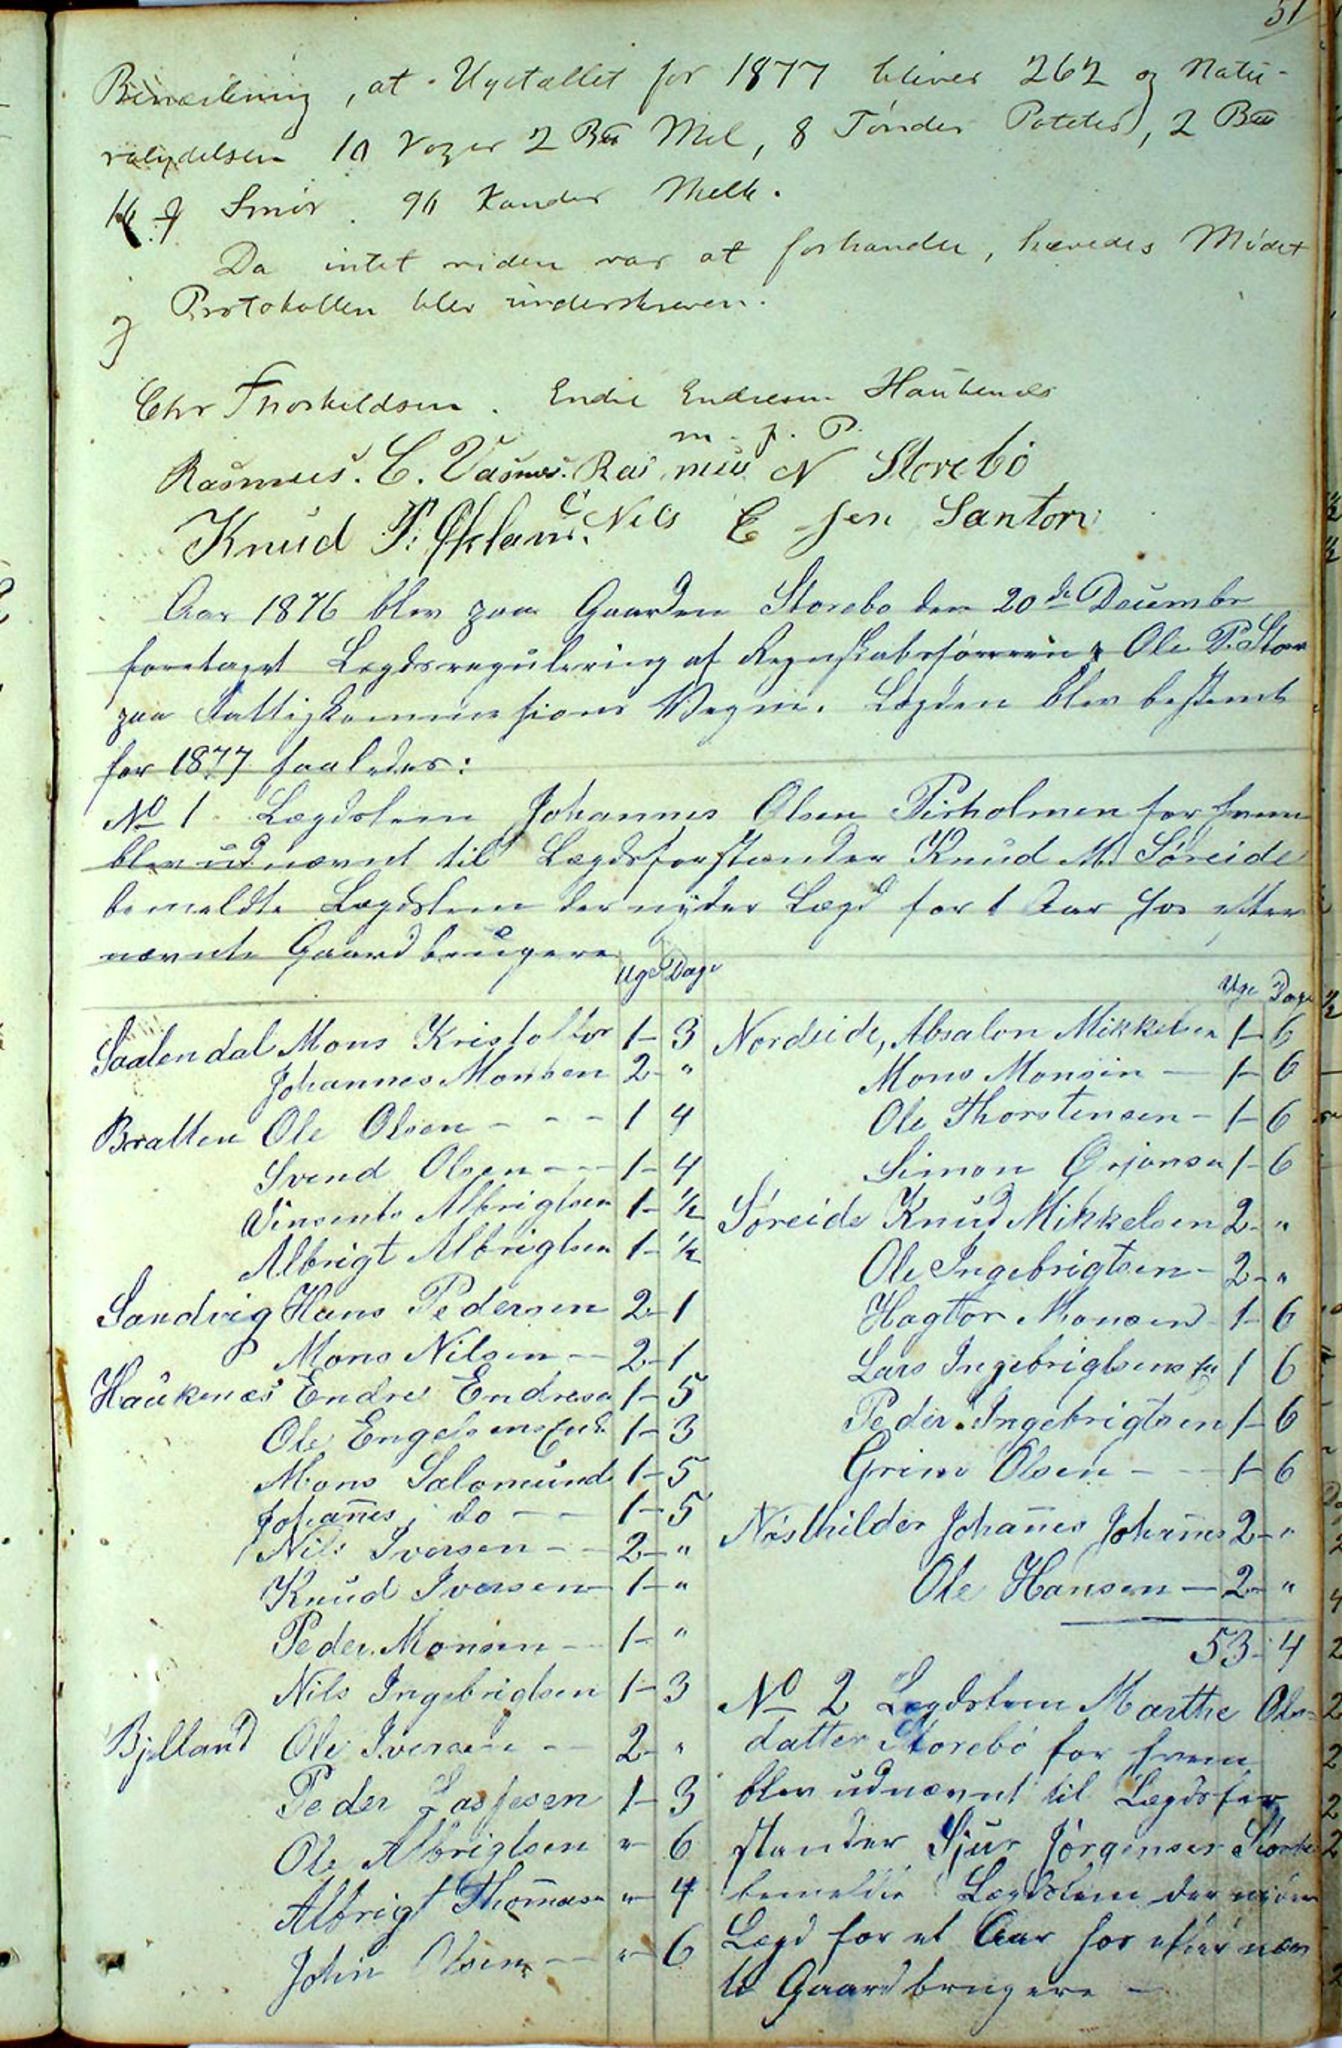 51
Bemærkning, at Ugetallet for 1877 bliver 262 og Natu-
ralydelsen 10 Voger 2 Mel, 8 Tønder Poteter, 2
16 Smør. 96 Kander Melk.
Da intet videre var at forhandle, hævedes Mødet
og Protokollen blev underskreven.
Chr Thorkildsen. Endre Endresen Haukenæs
m. f. P.
Rasmus. C. Rasmus N Storebö
Knud P. Nils E sen Santon
Aar 1876 blev paa Gaarden Storebø den 20de Decembr
foretaget Lægdsregulering af Regnskabsføreren Ole P. Stor
paa Fattigkommissions Vegne. Lægden blev bestemt
for 1877 saaledes:
No 1 Lægdslem Johannes Olsen for hvem
blev udnævnt til Lægdsforstander Knud M. Søreide
bemeldte Lægdslem der nyder Lægd for 1 Aar hos efter
nævnte Gaardbrugere
Uge Dage
Saalendal Mons Kristoffer 1 - 3
Johannes Monsen 2 - "
Bratten Ole Olsen - - - 1 4
Svend Olsen - - - 1 - 4
Vinsents Albrigtsen 1 - ½
Albrigt Albrigtsen 1 - ½
Sandvig Hans Pedersen 2 - 1
Mons Nilsen - - 2 - 1
Haukenæs Endre Endresen 1 - 5
Ole Engelsens Enke 1 - 3
Mons Salomunds 1 - 5
Johannes, do - - 1 - 5
Nils Iversen - - 2 - "
Knud Iversen - 1 - "
Peder Monsen - 1 - "
Nils Ingebrigtsen 1 - 3
Bjelland Ole Iversen - - 2 - "
Peder Lassesen 1 - 3
Ole Albrigtsen " - 6
Albrigt Thomasen " - 4
John Olsen - - " - 6
Uge Dage
Nordeide, Absalon Mikkelsen 1 - 6
Mons Monsen - 1 - 6
Ole Thorstensen - 1 - 6
Simon Ørjansen 1 - 6
Søreide Knud Mikkelsen 2 - "
Ole Ingebrigtsen - 2 - "
Hagtor Monsen 1 - 6
Lars Ingebrigtsens 1 6
Peder Ingebrigtsen 1 - 6
Grim Olsen - - 1 - 6
Nøsthilder Johannes Johannes 2 - "
Ole Hansen - 2 - "
53 - 4
No 2 Lægdslem Marthe Ols-
datter Storebö for hvem
blev udnævnt til Lægdsfor
stander Sjur Jørgensen Storbø
bemeldte Lægdslem der nyder
Lægd for et Aar hos efternævn
te Gaardbrugere -